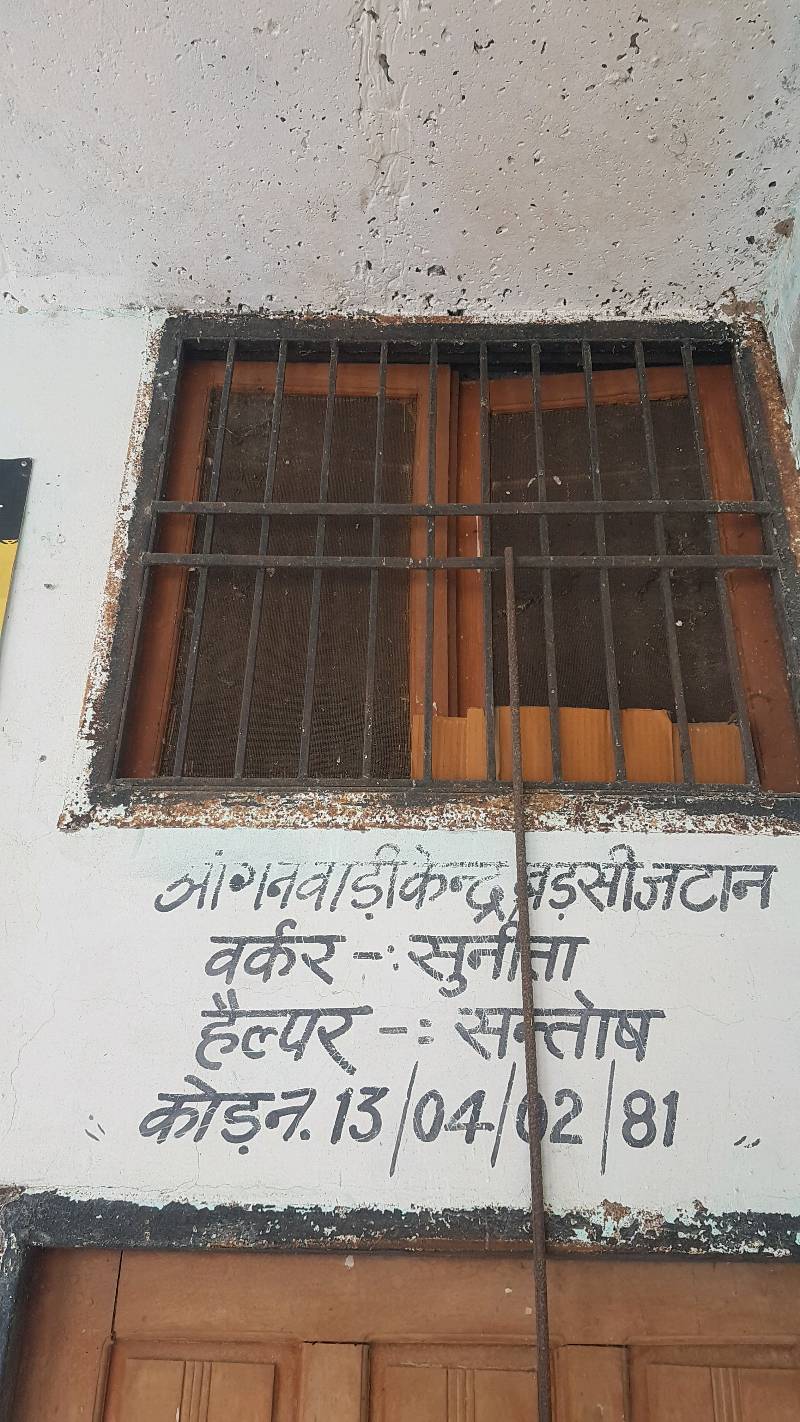 आंगनवाड़ी केन्द्र बड़सीजटान
वर्कर -: सुनीता
हैल्पर -: सन्तोष
कोड़ न. 13/04/02/81